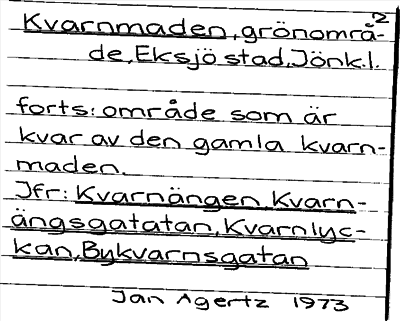 2
Kvarnmaden, grönområ-
de, Eksjö stad, Jönk.l.
forts: område som är
kvar av den gamla kvarn-
maden.
Jfr: Kvarnängen, Kvarn-
ängsgatatan, Kvarnlyc-
kan, Bykvarnsgatan
Jan Agertz 1973